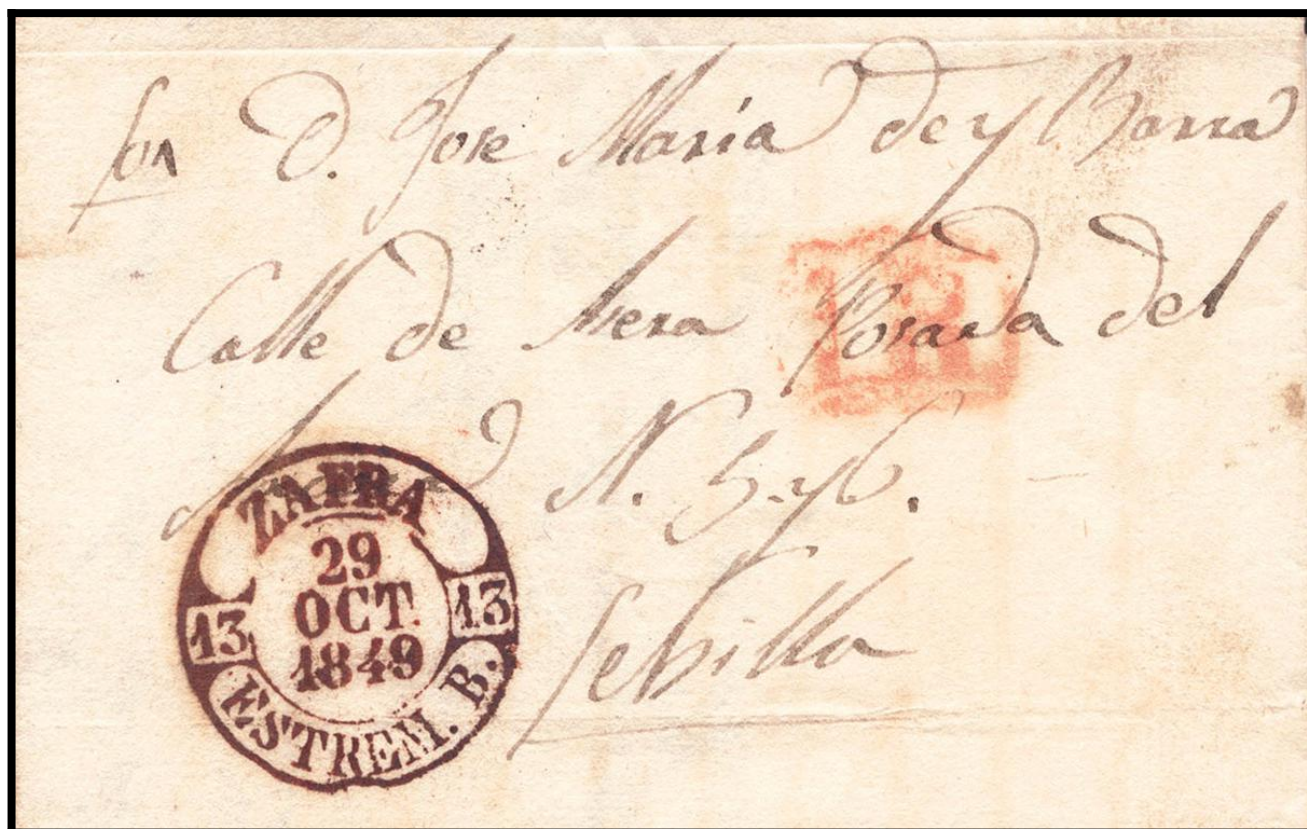 D. Jose María de yBarra
Calle de Mesa Posada del
N. 576.
Sebilla
ZAFRA
29
OCT.
1849
13
13
ESTREM. B.